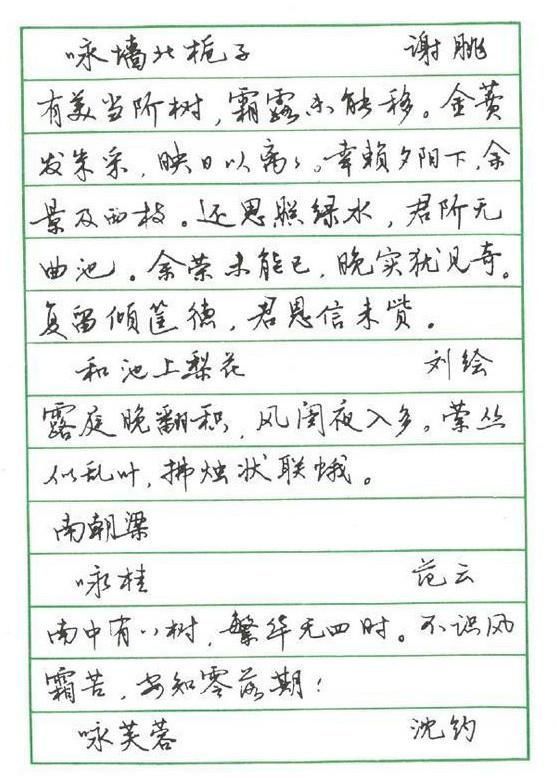 咏墙北栀子 谢朓
有美当阶树，霜露未能移。金蕡
发朱采，映日以离〻。幸赖夕阳下，余
景及西枝。还思照绿水，君阶无
曲池。余荣未能已，晚实犹见奇。
复留倾筐德，君恩信未赀。
和池上梨花 刘绘
露庭晚翻积，风闺夜入多。萦丛
似乱叶，拂烛状联蛾。
南朝梁
咏桂 范云
南中有八树，繁华无四时。不识风
霜苦，安知零落期！
咏芙蓉 沈约